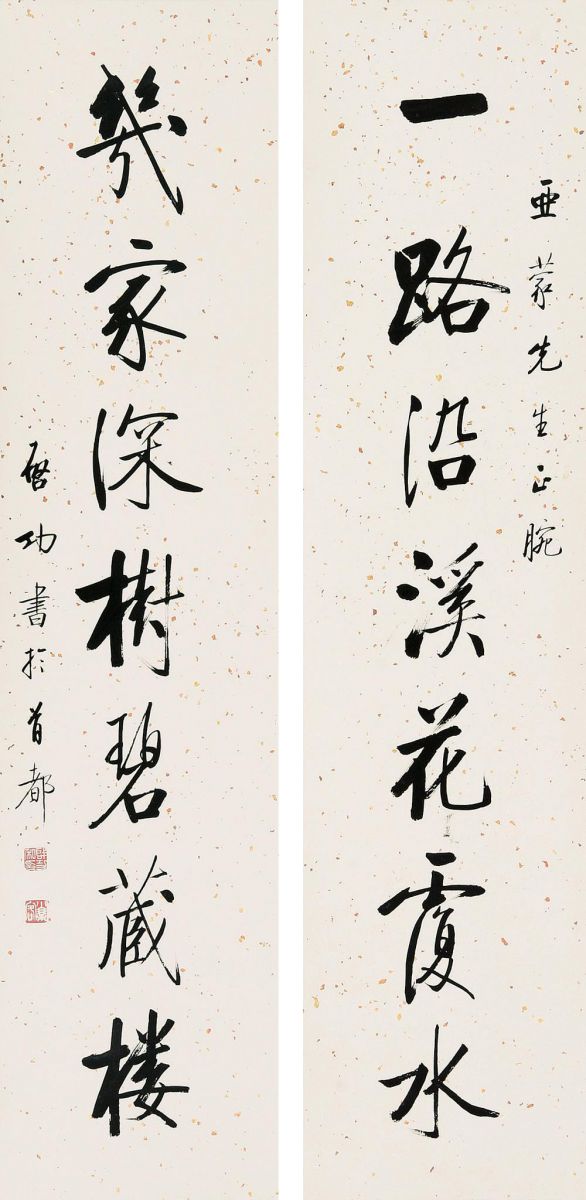 亚蒙先生正腕
一路沿溪花覆水
幾家深樹碧藏楼
启功書於首都